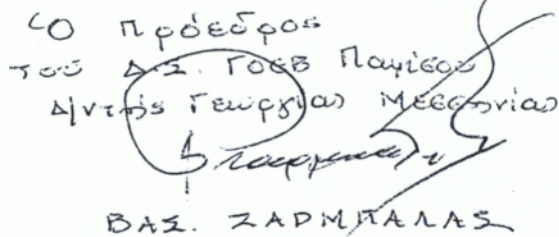 Ὁ Πρόεδρος
τοῦ Δ.Σ. ΓΟΕΒ Παμίσου
Δ/ντής Γεωργίας Μεσσηνίας
ΒΑΣ. ΖΑΡΜΠΑΛΑΣ